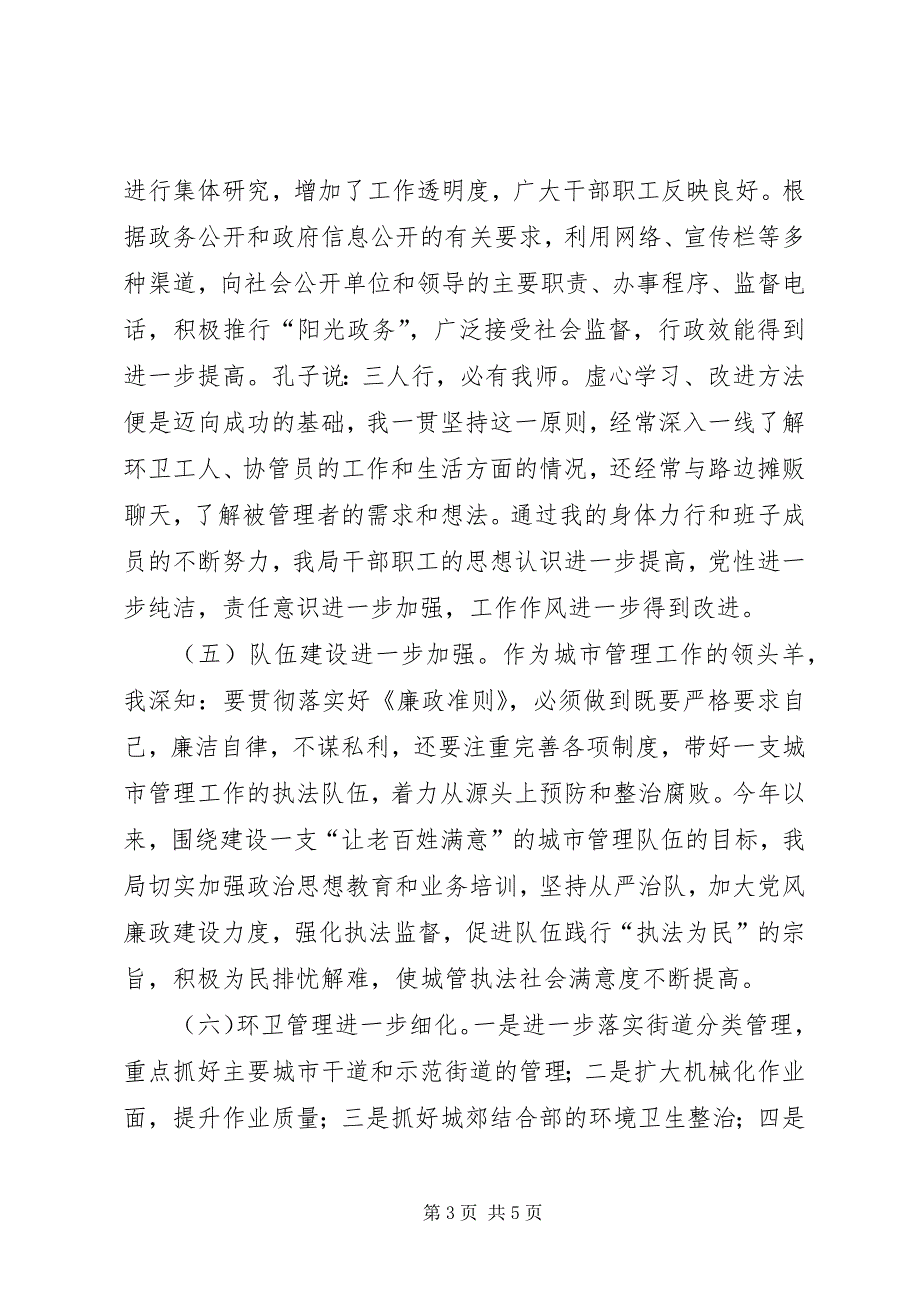 进行集体研究，增加了工作透明度，广大干部职工反映良好。根
据政务公开和政府信息公开的有关要求，利用网络、宣传栏等多
种渠道，向社会公开单位和领导的主要职责、办事程序、监督电
话，积极推行“阳光政务”，广泛接受社会监督，行政效能得到
进一步提高。孔子说：三人行，必有我师。虚心学习、改进方法
便是迈向成功的基础，我一贯坚持这一原则，经常深入一线了解
环卫工人、协管员的工作和生活方面的情况，还经常与路边摊贩
聊天，了解被管理者的需求和想法。通过我的身体力行和班子成
员的不断努力，我局干部职工的思想认识进一步提高，党性进一
步纯洁，责任意识进一步加强，工作作风进一步得到改进。
（五）队伍建设进一步加强。作为城市管理工作的领头羊，
我深知：要贯彻落实好《廉政准则》，必须做到既要严格要求自
己，廉洁自律，不谋私利，还要注重完善各项制度，带好一支城
市管理工作的执法队伍，着力从源头上预防和整治腐败。今年以
来，围绕建设一支“让老百姓满意”的城市管理队伍的目标，我
局切实加强政治思想教育和业务培训，坚持从严治队，加大党风
廉政建设力度，强化执法监督，促进队伍践行“执法为民”的宗
旨，积极为民排忧解难，使城管执法社会满意度不断提高。
（六）环卫管理进一步细化。一是进一步落实街道分类管理，
重点抓好主要城市干道和示范街道的管理；二是扩大机械化作业
面，提升作业质量；三是抓好城郊结合部的环境卫生整治；四是
第 3 页 共 5 页